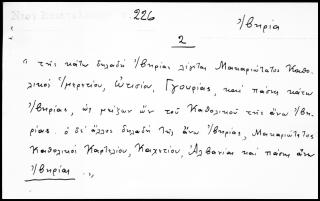 226
Ἰβηρία
2
" τῆς κάτω δηλαδὴ Ἰβηρίας λέγεται Μακαριώτατος Καθο-
λικοὶ Ἰμερετίου, Ὀτισίου, Γγουρίας, καὶ πάσης κάτω
Ἰβηρίας, ὡς μείζων ὢν τοῦ Καθολικοῦ τῆς ἄνω Ἰβη-
ρίας. ὁ δὲ ἄλλος δηλαδὴ τῆς ἄνω Ἰβηρίας, Μακαριώτατος
Καθολικοὶ Καρτελίου, Καχετίου, Ἀλβανίας καὶ πάσης ἄνω
Ἰβηρίας. "